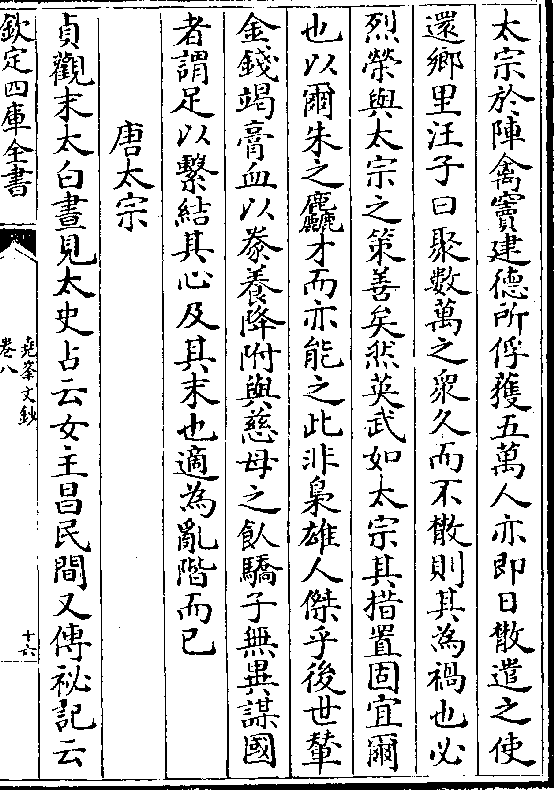 太宗於陣禽竇建德所俘獲五萬人亦即日散遣之使
還鄉里汪子曰聚數萬之衆久而不散則其為禍也必
烈榮與太宗之策善矣然英武如太宗其措置固宜爾
也以爾朱之麤才而亦能之此非梟雄人傑乎後世輦
金錢竭膏血以豢養降附與慈母之飤驕子無異謀國
者謂足以繫結其心及其末也適為亂階而已
唐太宗
貞觀末太白晝見太史占云女主昌民間又傳祕記云
欽定四庫全書
堯峯文鈔
卷八
十六